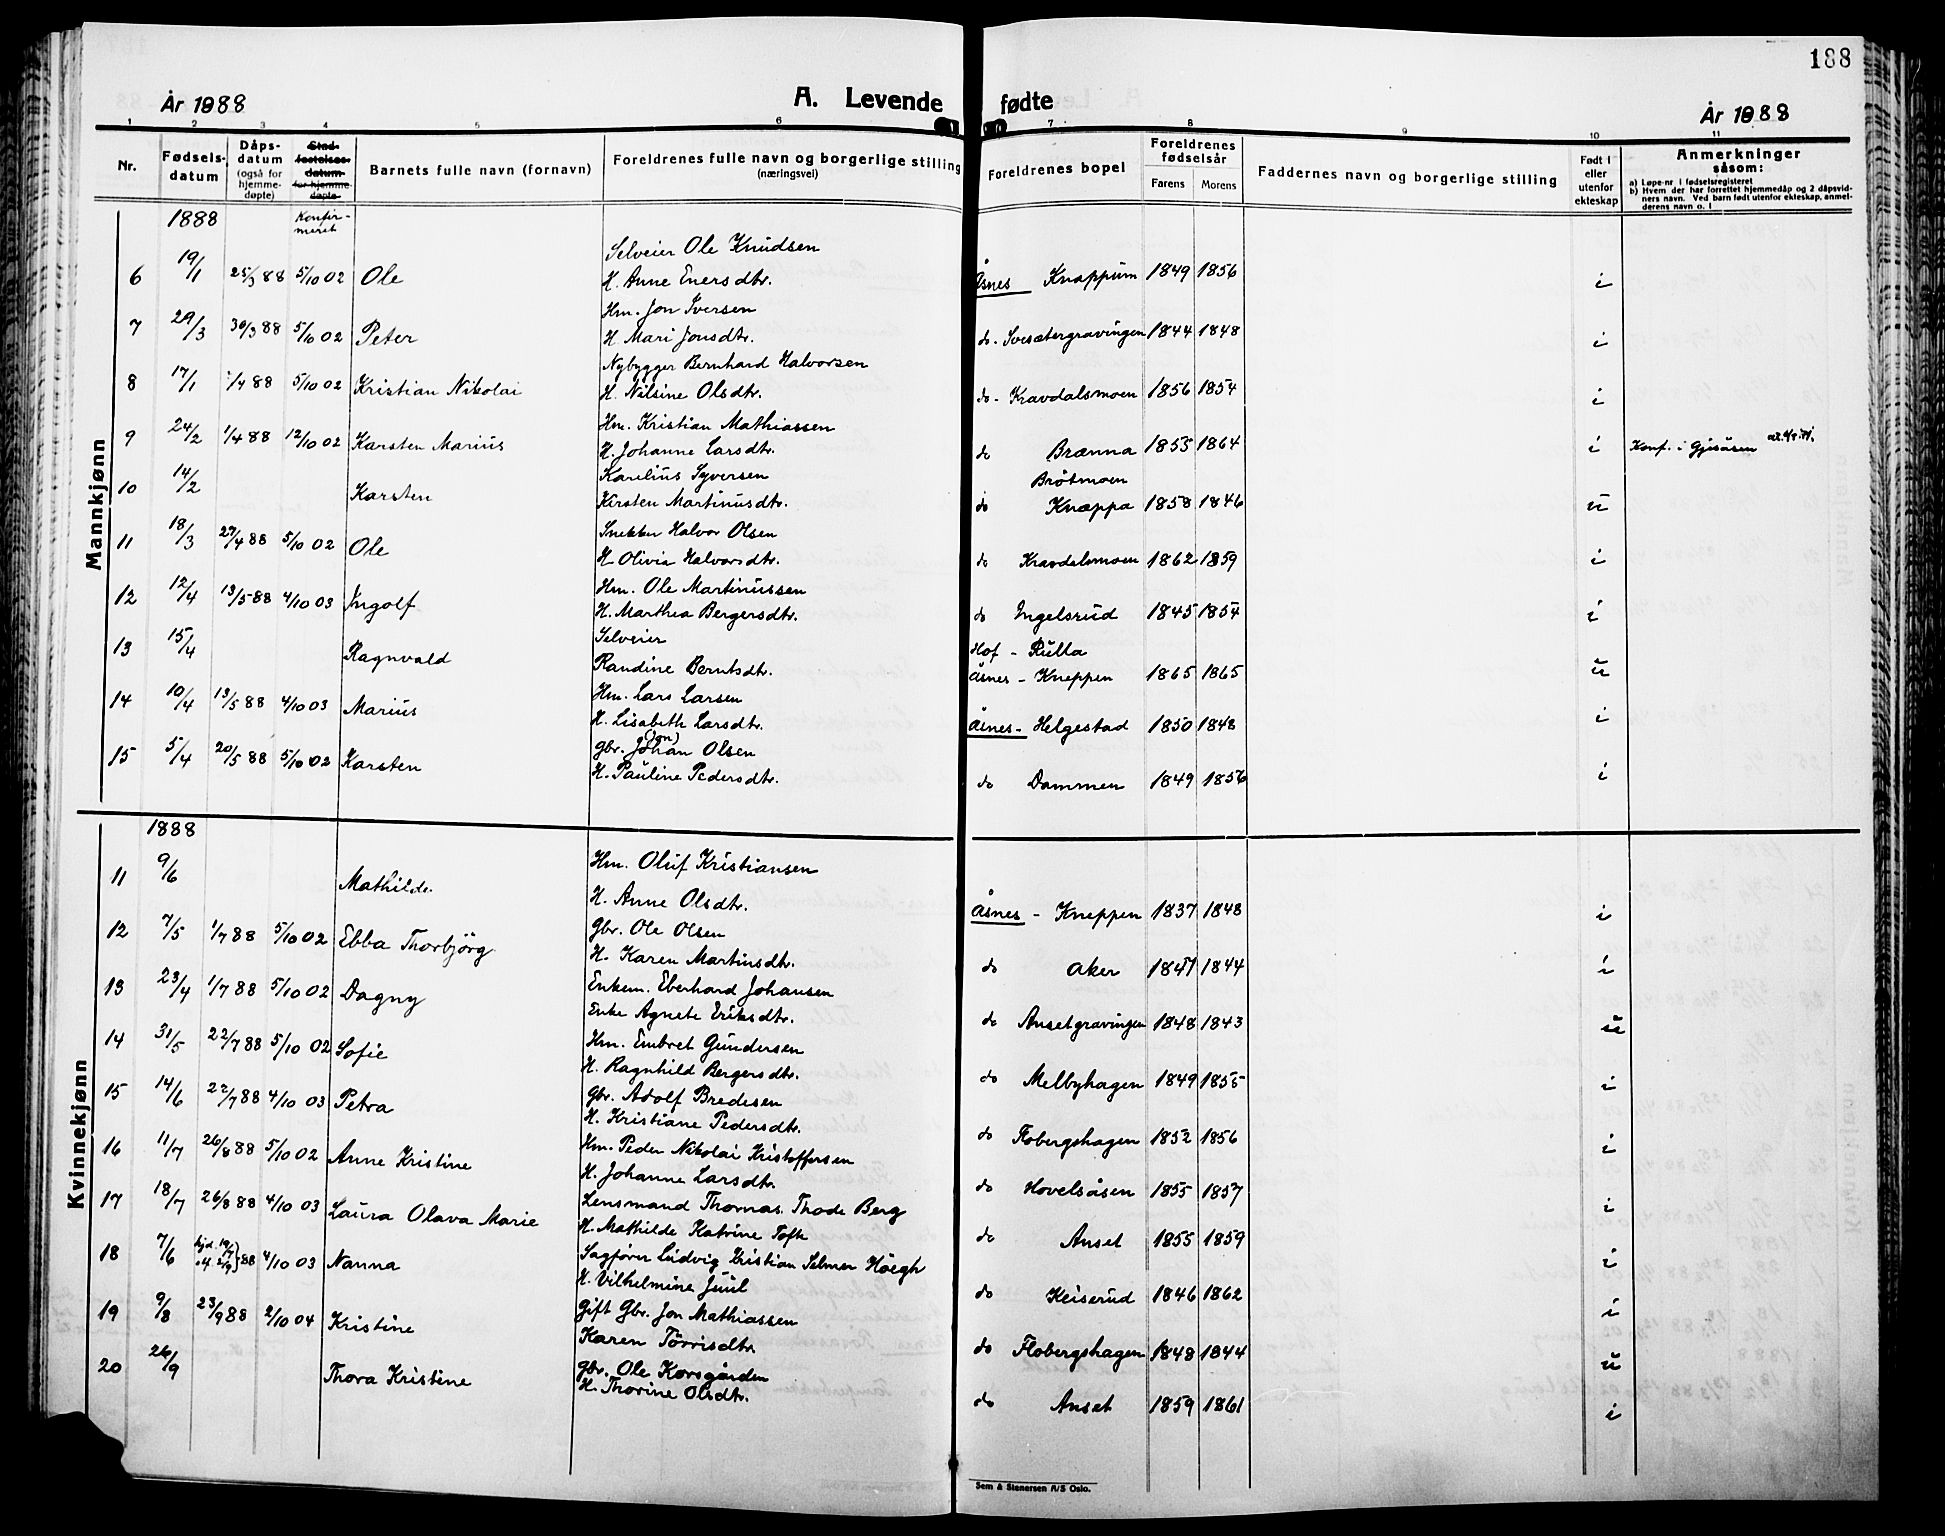 188
År 1888
A. Levende fødte
År 1888
1 2 3 4 5 6 7 8 9 10 11
Nr. Fødsels-datum Dåps-datum (også for hjemme-døpte) Stad-festelses-datum for hjemme-døpte Barnets fulle navn (fornavn) Foreldrenes fulle navn og borgerlige stilling (næringsvei) Foreldrenes bopel Foreldrenes fødselsår Farens Morens Faddernes navn og borgerlige stilling Født i eller utenfor ekteskap Anmerkninger såsom: a) Løpe-nr i fødselsregisteret b) Hvem der har forrettet hjemmedåp og 2 dåpsvidners navn. Ved barn født utenfor ekteskap, anmelderens navn o. l
Mannkjønn
1888 Konfirmeret
Selveier Ole Knudsen
6 19/1 25/3 88 5/10 02 Ole H. Anne Enersdtr. Åsnes Knappum 1849 1856 i
Hm. Jon Iversen
7 29/3 30/3 88 5/10 02 Peter H. Mari Jonsdtr. do - Svesætergravingen 1844 1848 i
Nybygger Bernhard Halvorsen
8 17/1 1/4 88 5/10 02 Kristian Nikolai H. Nilsine Olsdtr. do - Kravdalsmoen 1856 1854 i
Hm. Kristian Mathiassen
9 24/2 1/4 88 12/10 02 Karsten Marius H. Johanne Larsdtr. do Brænna 1855 1864 i Konf. i Gjesåsen
Karelius Syversen Bråtmoen
10 14/2 Karsten Kirsten Martinusdtr. do Knæppa 1858 1846 u
Snekker Halvor Olsen
11 18/3 27/4 88 5/10 02 Ole H. Olivia Halvorsdtr. do Kravdalsmoen 1862 1859 i
Hm. Ole Martinussen
12 12/4 13/5 88 4/10 03 Ingolf H. Marthea Bergersdtr. do Ingelsrud 1845 1854 i
Selveier Hof - Rulla
13 15/4 Ragnvald Randine Berntsdtr. Åsnes - Kneppen 1865 1865 u
Hm. Lars Larsen
14 10/4 13/5 88 4/10 03 Marius H. Lisabeth Larsdtr. Åsnes - Helgestad 1850 1848 i
(Jon)
Gbr. Johan Olsen
15 5/4 20/5 88 5/10 02 Karsten H. Pauline Pedersdtr. do Dammen 1849 1856 i
Kvinnekjønn
1888
Hm. Oluf Kristiansen
11 9/6 Mathilde H. Anne Olsdtr. Åsnes - Kneppen 1837 1848 i
Gbr. Ole Olsen
12 7/5 1/7 88 5/10 02 Ebba Thorbjörg H. Karen Martinsdtr. do Aker 1847 1844 i
Enkem. Eberhard Johansen
13 23/4 1/7 88 5/10 02 Dagny Enke Agnete Eriksdtr. do Ansetgravingen 1848 1843 u
Hm. Embret Gundersen
14 31/5 22/7 88 5/10 02 Sofie H. Ragnhild Bergersdtr. do Melbyhagen 1849 1855 i
Gbr. Adolf Bredesen
15 14/6 22/7 88 4/10 03 Petra H. Kristiane Pedersdtr. do Flobergshagen 1852 1856 i
Hm. Peder Nikolai Kristoffersen
16 11/7 26/8 88 5/10 02 Anne Kristine H. Johanne Larsdtr. do Hovelsåsen 1855 1857 i
Lensmand Thomas Thode Berg
17 18/7 26/8 88 4/10 03 Laura Olava Marie H. Mathilde Katrine Toft do Anset 1855 1859 i
Sagfører Ludvig Kristian Selmer Höegh
18 7/6 88 4/10 03 Nanna H. Vilhelmine Juul do Keiserud 1846 1862 i
Gift Gbr. Jon Mathiassen
19 9/8 23/9 88 2/10 04 Kristine Karen Törrisdtr. do Flobergshagen 1848 1844 u
Gbr. Ole Korsgården
20 26/9 Thora Kristine H. Thorine Olsdtr. do Anset 1859 1861 i
Sem & Stenersen A/S Oslo.